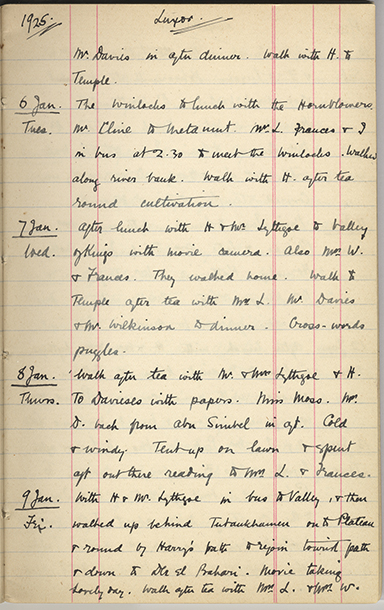 1925. Luxor.
Mr. Davies in after dinner. Walk with H. to
Temple.
6 Jan. The Winlocks to lunch with the Hornblowers.
Tues. Mr Cline to Metamut. Mrs L. Frances & I
in bus at 2.30 to meet the Winlocks. Walked
along river bank. Walk with H. after tea
round cultivation.
7 Jan. After lunch with H & Mr Lythgoe to Valley
Wed. of Kings with movie camera. Also Mrs W.
& Frances. They walked home. Walk to
Temple after tea with Mrs L. Mr Davies
& Mr Wilkinson to dinner. Cross-words
puzzles.
8 Jan. Walk after tea with Mr. & Mrs Lythgoe & H.
Thurs. To Davieses with papers. Miss Moss. Mr.
D. back from Abu Simbel in aft. Cold
& windy. Tent up on lawn & spent
aft out there reading to Mrs L. & Frances.
9 Jan. With H & Mr Lythgoe in bus to Valley, & then
Fri. walked up behind Tutankhamen on to Plateau
& round by Harry's path to rejoin tourist path
& down to Der el Bahari. Movie taking
lovely day. Walk after tea with Mrs L. & Mrs W.